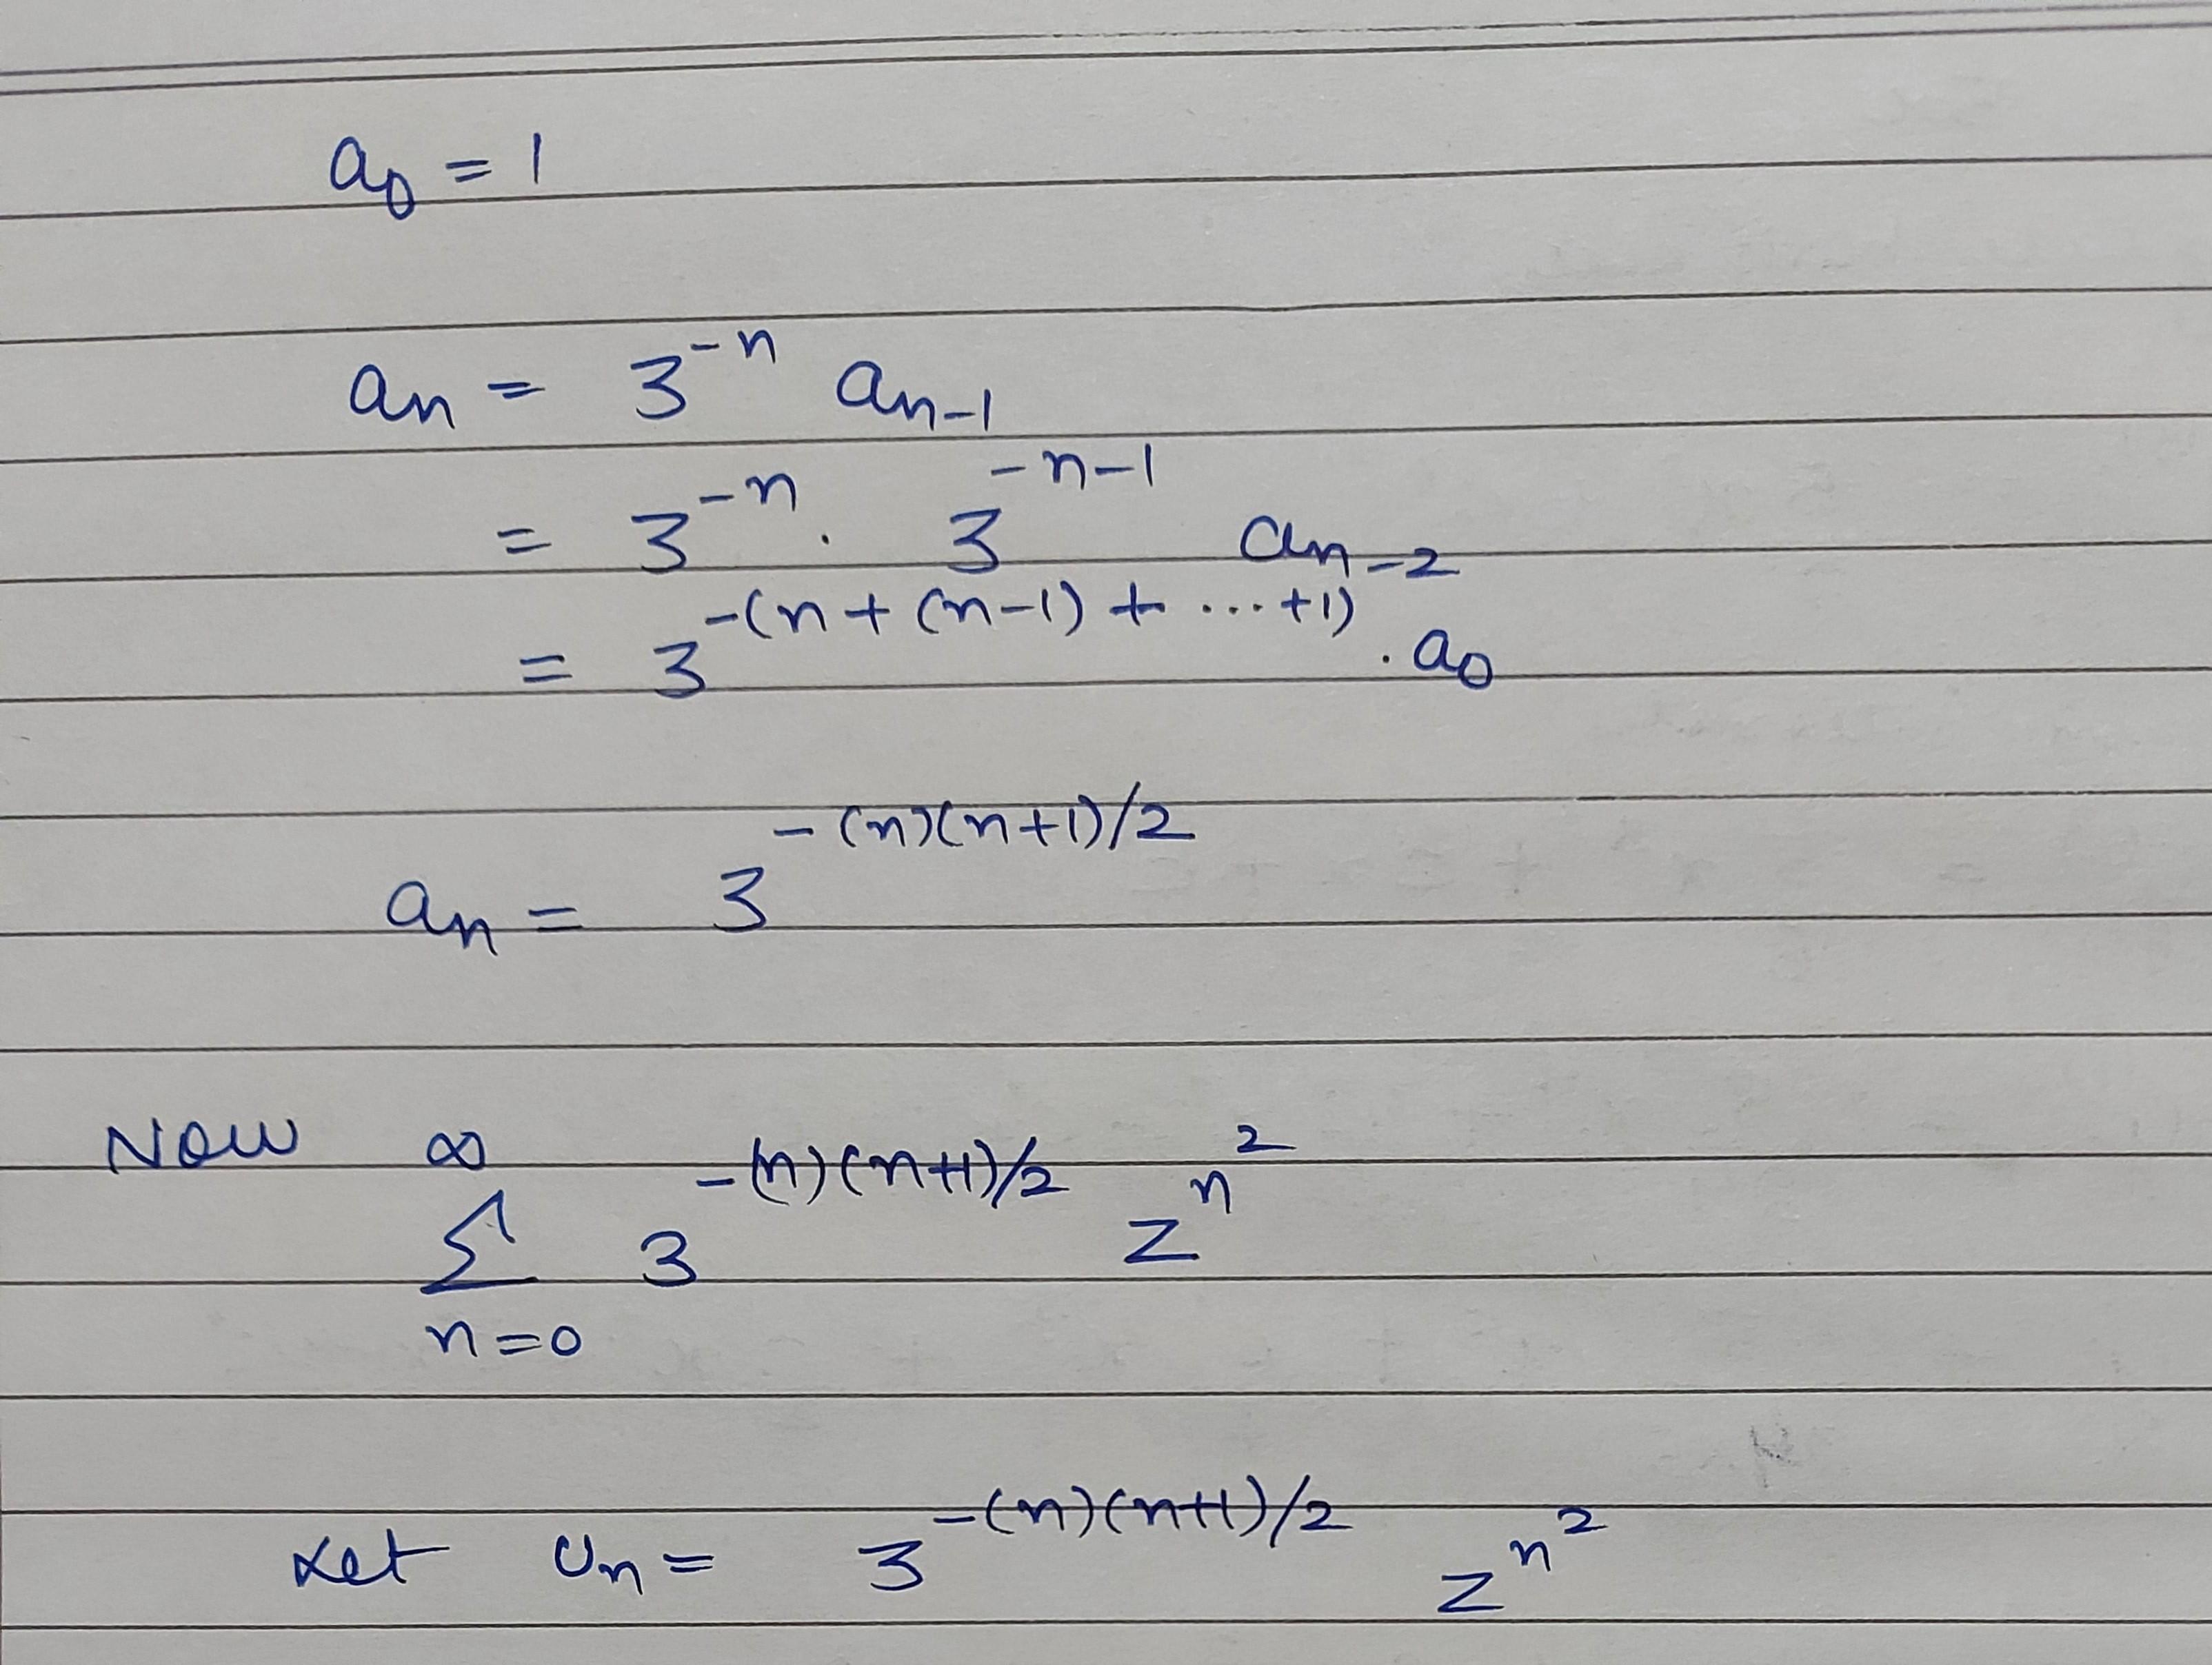 a₀ = 1
aₙ = 3^{-n} aₙ₋₁
= 3^{-n} . 3^{-n-1} aₙ₋₂
= 3^{-(n + (n-1) + ... +1)} . a₀
aₙ = 3^{-(n)(n+1)/2}
Now ∞
∑ 3^{-(n)(n+1)/2} z^{n^2}
n=0
Let Uₙ = 3^{-(n)(n+1)/2} z^{n^2}